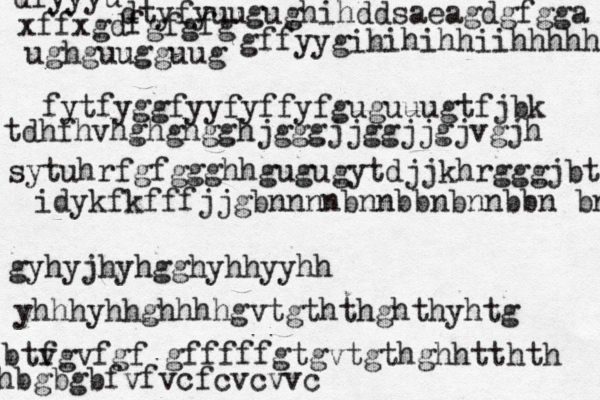 dtyfyuugughihddsaeagdgfgga
xffxgdfgfgfg
gffyygihihihhiihhhhh
ughguugguug
fytfyggfyyfyffyfguguuugtfjbk
tdhfhvhghghgghjgggjjggjjgjvgjh
sytuhrfgfggghhgugugytdjjkhrgggjbt
idykfkfffjjgbnnnnbnnbbnbnnbbn bn
gyhyjhyhgghyhhyyhh
yhhhyhhghhhhgvtgththghthyhtg
btfgvfgf gfffffgtgvtgthghhtthth
hbgbgbfvfvcfcvcvvc